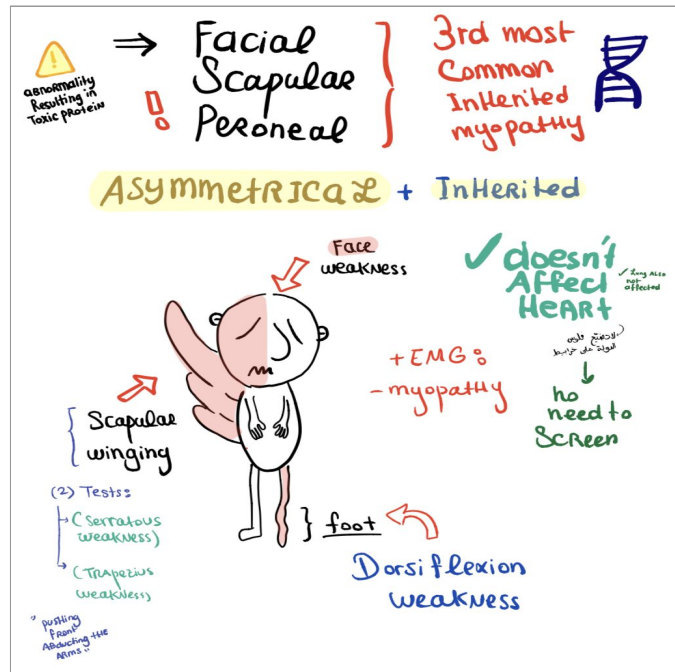 ABNORMALITY
Resulting in
Toxic protein
⇒ Facial
Scapular
Peroneal
3rd most
Common
InHerited
myopathy
ASYmmetRICAL + InHeRited
Face
weakness
✓ doesn't
Affect
HeARt
✓ Lung ALSO
not
affected
+ EMG:
- myopathy
no
need to
SCReen
Scapular
winging
(2) Tests:
(Serratous
weakness)
(TRApezius
weakness)
" pushing
front
ABducting tHe
ARms "
foot
Dorsiflexion
weakness